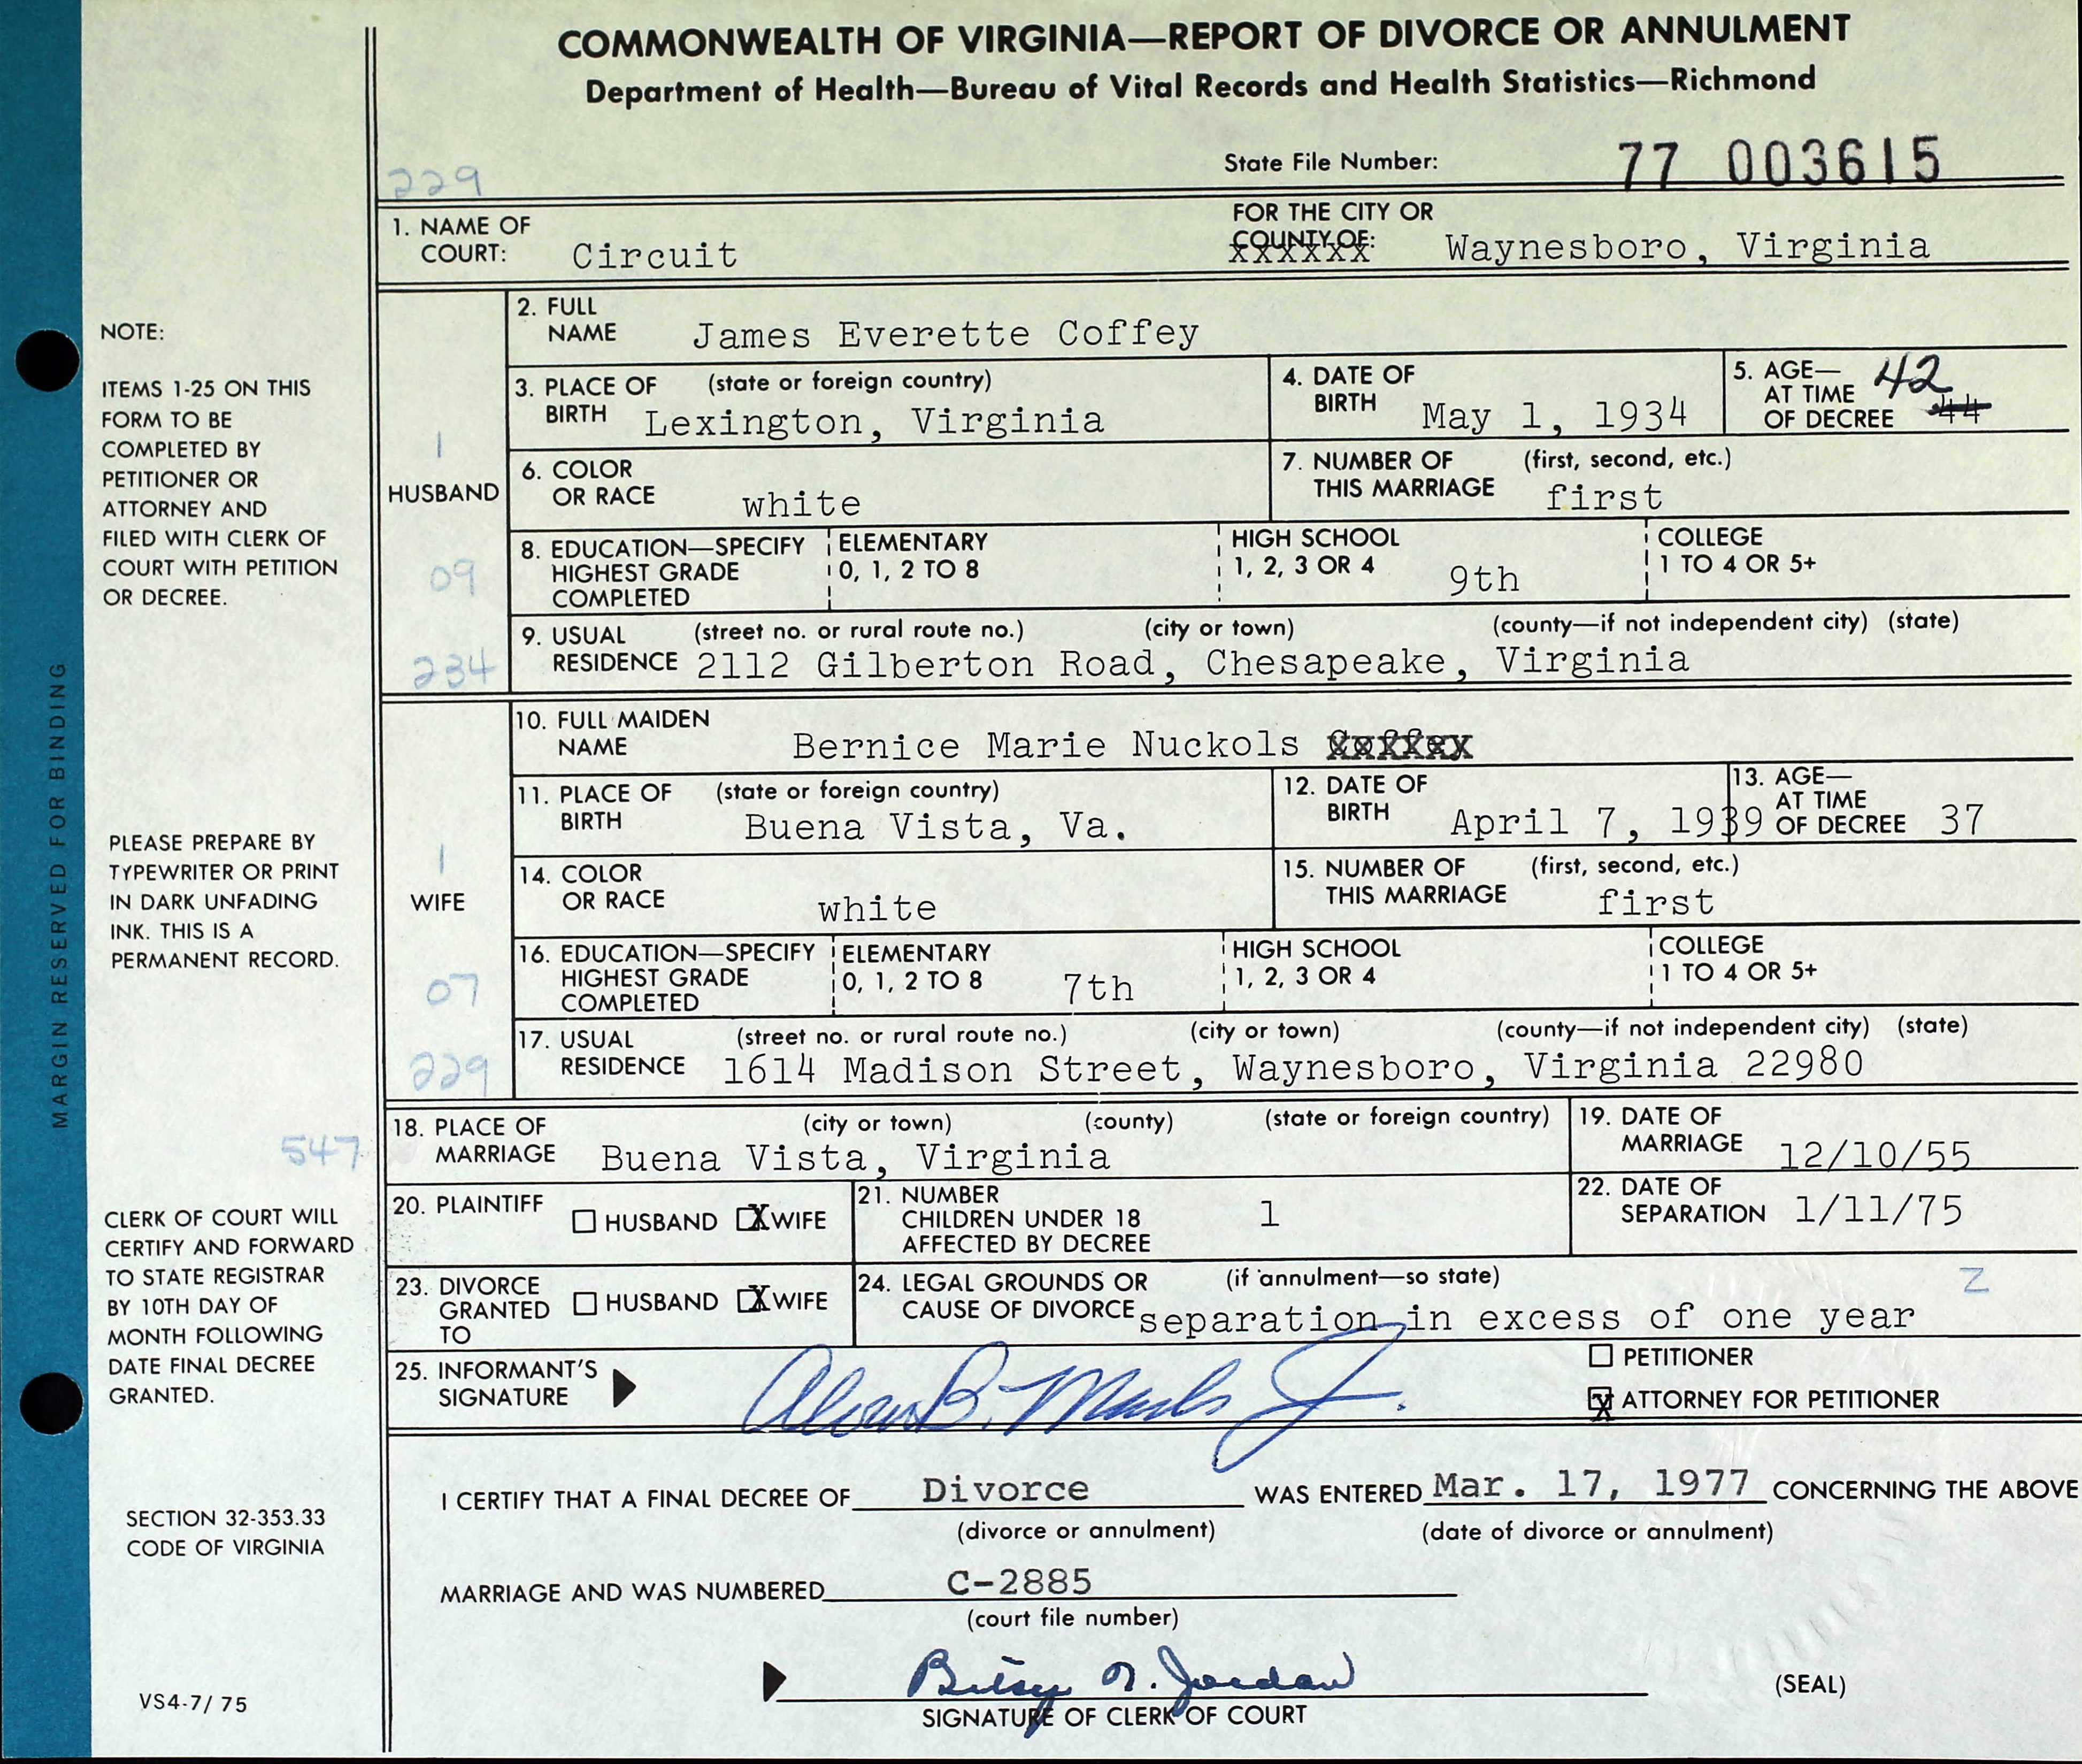 COMMONWEALTH OF VIRGINIA—REPORT OF DIVORCE OR ANNULMENT
Department of Health—Bureau of Vital Records and Health Statistics—Richmond
State File Number: 77 003615
229
1. NAME OF COURT: Circuit
FOR THE CITY OR COUNTY OF: Waynesboro, Virginia
2. FULL NAME James Everette Coffey
3. PLACE OF BIRTH (state or foreign country) Lexington, Virginia
4. DATE OF BIRTH May 1, 1934
5. AGE—AT TIME OF DECREE 42 44
1
HUSBAND
6. COLOR OR RACE white
7. NUMBER OF THIS MARRIAGE (first, second, etc.) first
8. EDUCATION—SPECIFY HIGHEST GRADE COMPLETED
ELEMENTARY 0, 1, 2 TO 8
HIGH SCHOOL 1, 2, 3 OR 4 9th
COLLEGE 1 TO 4 OR 5+
09
9. USUAL RESIDENCE (street no. or rural route no.) (city or town) (county—if not independent city) (state)
2112 Gilberton Road, Chesapeake, Virginia
234
10. FULL MAIDEN NAME Bernice Marie Nuckols Coffey
11. PLACE OF BIRTH (state or foreign country) Buena Vista, Va.
12. DATE OF BIRTH April 7, 1939
13. AGE—AT TIME OF DECREE 37
1
WIFE
14. COLOR OR RACE white
15. NUMBER OF THIS MARRIAGE (first, second, etc.) first
16. EDUCATION—SPECIFY HIGHEST GRADE COMPLETED
ELEMENTARY 0, 1, 2 TO 8 7th
HIGH SCHOOL 1, 2, 3 OR 4
COLLEGE 1 TO 4 OR 5+
07
17. USUAL RESIDENCE (street no. or rural route no.) (city or town) (county—if not independent city) (state)
1614 Madison Street, Waynesboro, Virginia 22980
229
18. PLACE OF MARRIAGE (city or town) (county) (state or foreign country)
Buena Vista, Virginia
19. DATE OF MARRIAGE 12/10/55
547
20. PLAINTIFF HUSBAND X WIFE
21. NUMBER CHILDREN UNDER 18 AFFECTED BY DECREE 1
22. DATE OF SEPARATION 1/11/75
23. DIVORCE GRANTED TO HUSBAND X WIFE
24. LEGAL GROUNDS OR CAUSE OF DIVORCE (if annulment—so state) separation in excess of one year
Z
25. INFORMANT'S SIGNATURE
PETITIONER
X ATTORNEY FOR PETITIONER
I CERTIFY THAT A FINAL DECREE OF Divorce WAS ENTERED Mar. 17, 1977 CONCERNING THE ABOVE
(divorce or annulment) (date of divorce or annulment)
MARRIAGE AND WAS NUMBERED C-2885
(court file number)
Betsy N. Jordan
SIGNATURE OF CLERK OF COURT
(SEAL)
NOTE:
ITEMS 1-25 ON THIS
FORM TO BE
COMPLETED BY
PETITIONER OR
ATTORNEY AND
FILED WITH CLERK OF
COURT WITH PETITION
OR DECREE.
PLEASE PREPARE BY
TYPEWRITER OR PRINT
IN DARK UNFADING
INK. THIS IS A
PERMANENT RECORD.
CLERK OF COURT WILL
CERTIFY AND FORWARD
TO STATE REGISTRAR
BY 10TH DAY OF
MONTH FOLLOWING
DATE FINAL DECREE
GRANTED.
SECTION 32-353.33
CODE OF VIRGINIA
VS4-7/ 75
MARGIN RESERVED FOR BINDING